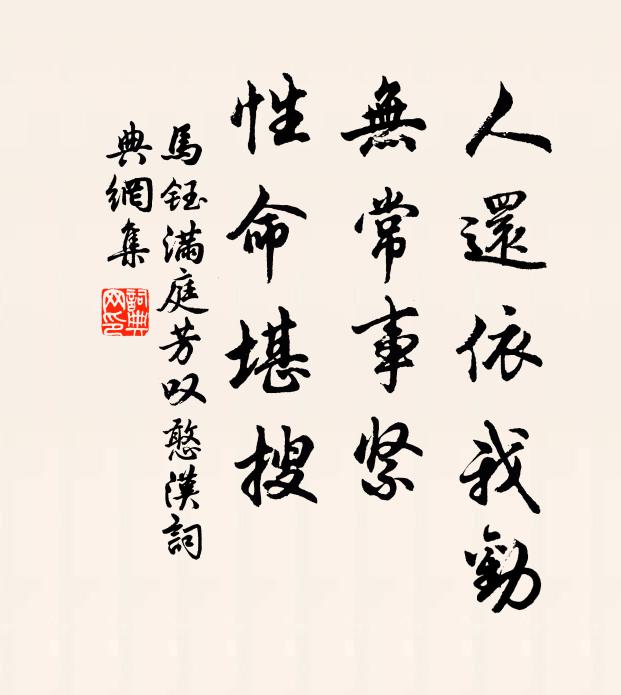 人還依我勸
無常事緊
性命堪搜
馬鈺滿庭芳叹憨漢詞
典網集
詞典
网印